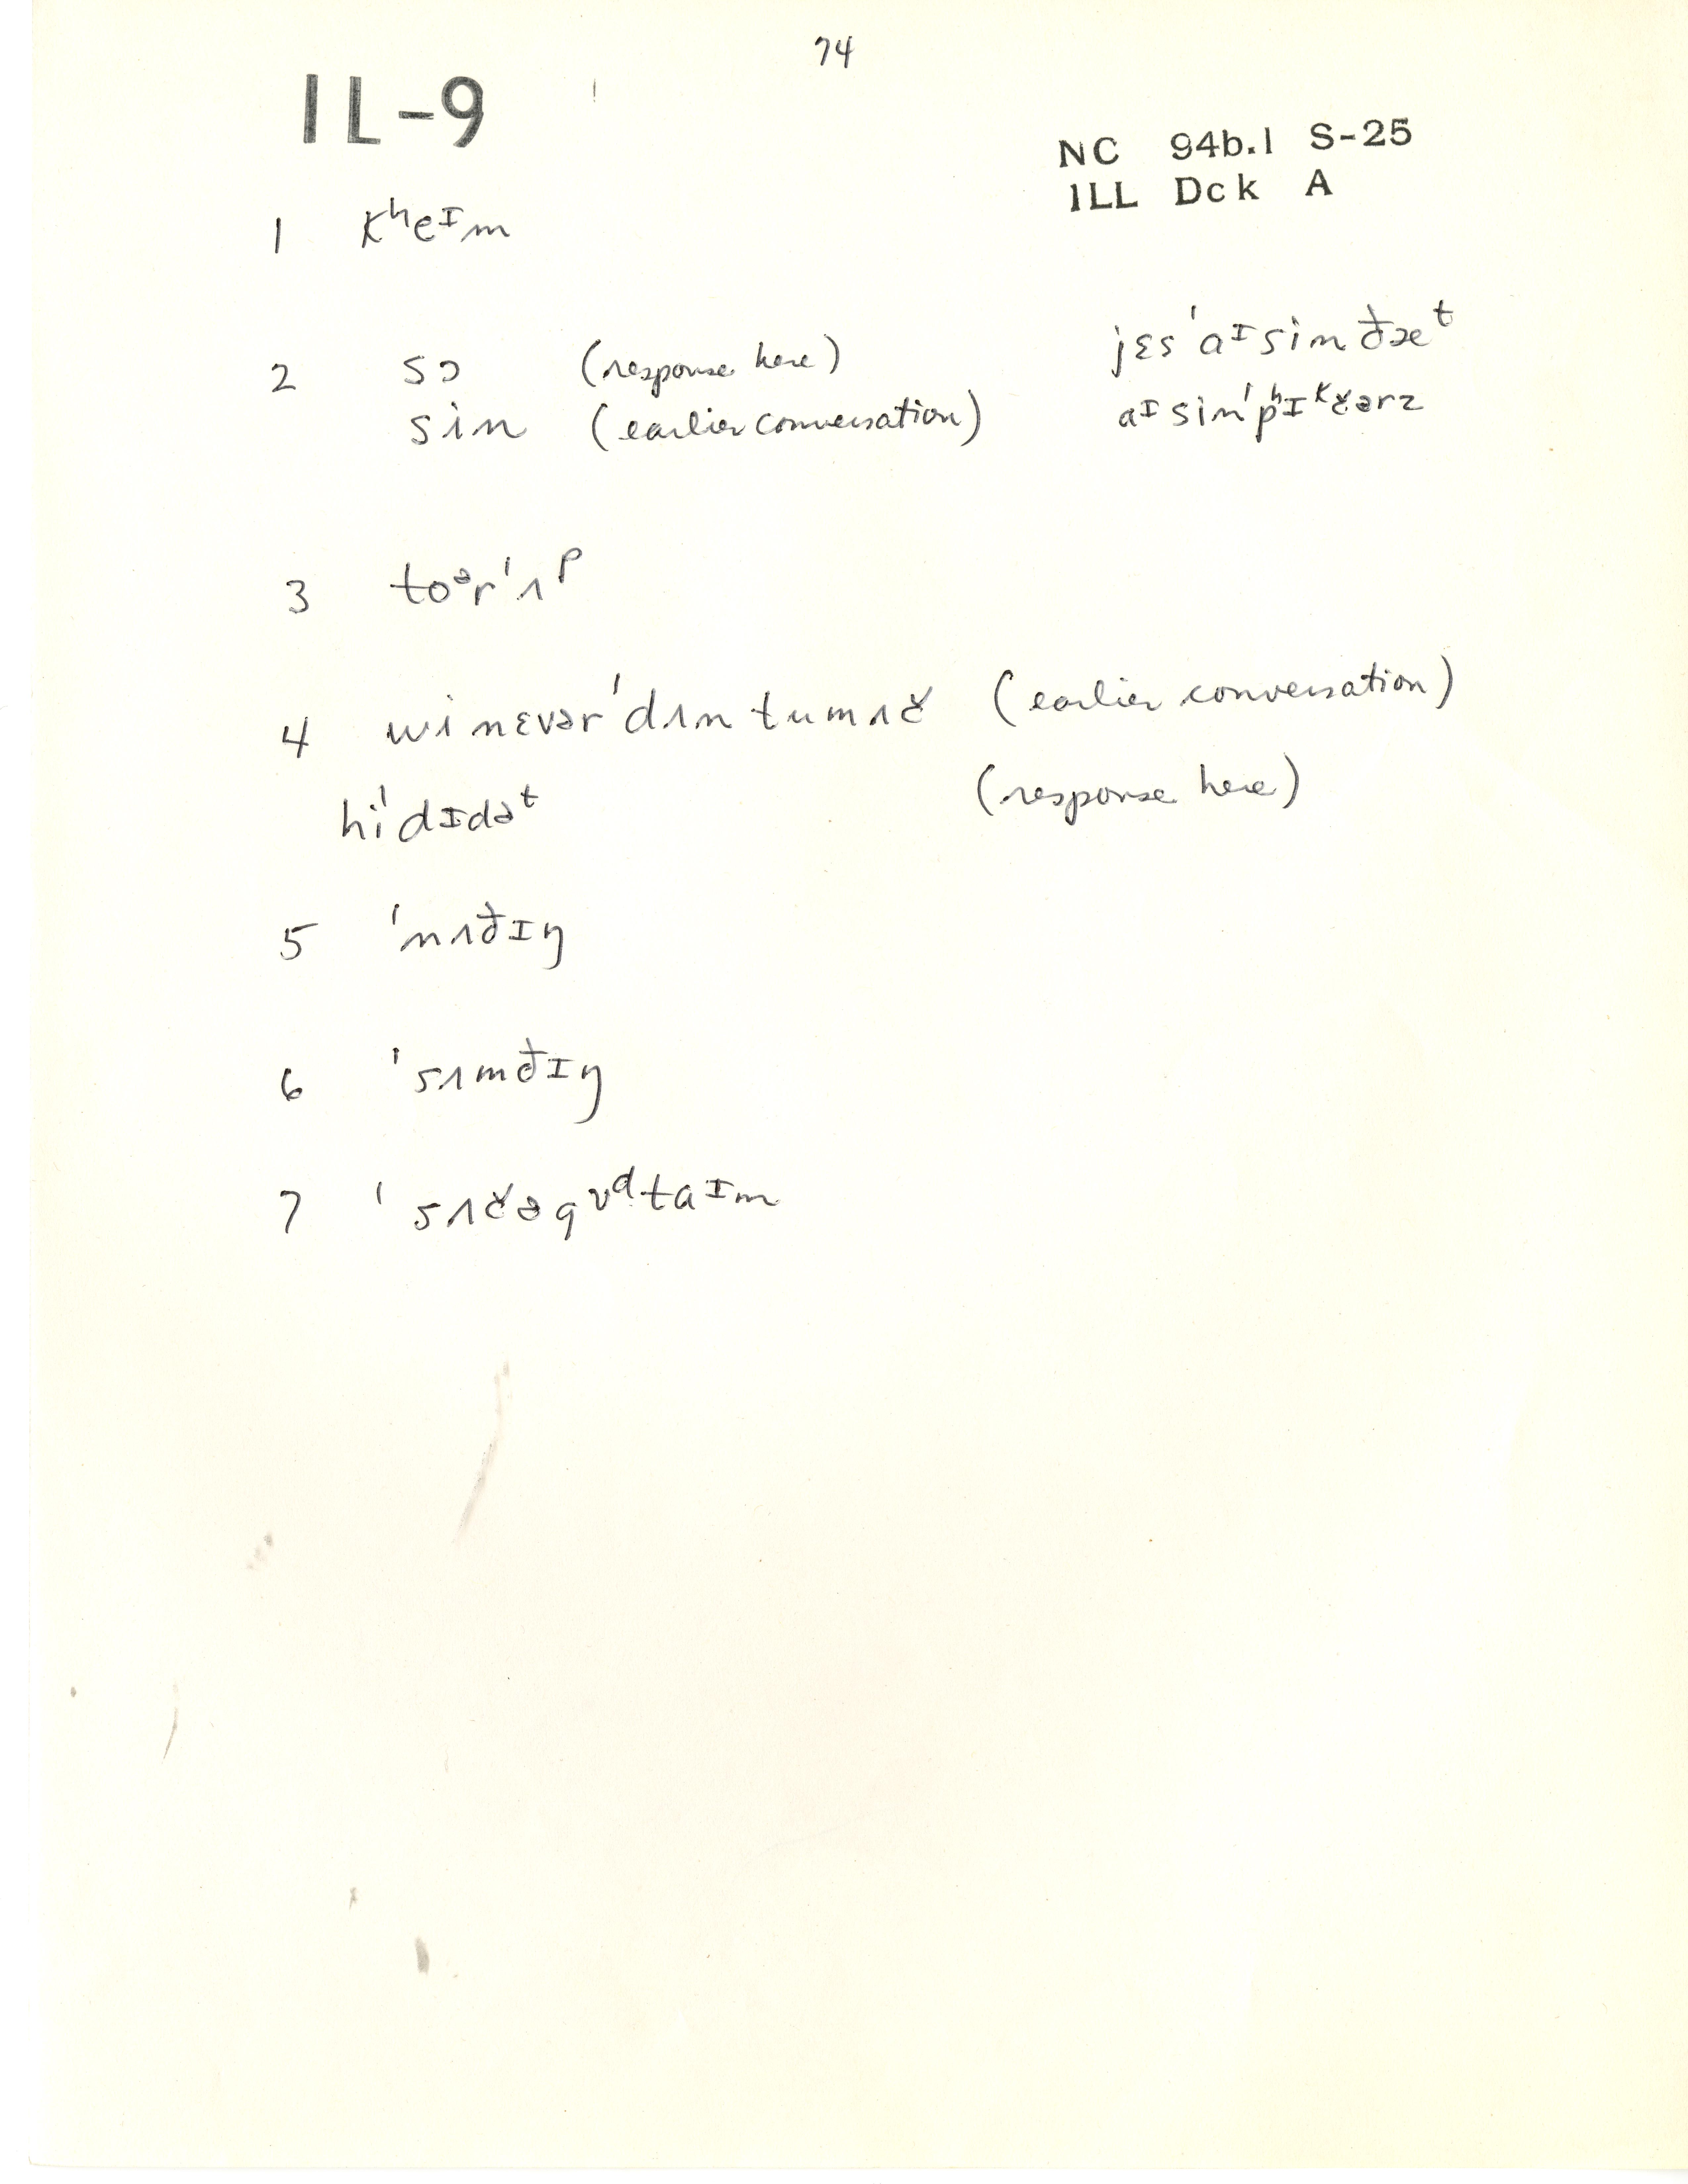 74
IL-9
NC 94b.1 S-25
ILL Dck A
1 kʰeᴵm
2 sɔ (response here) jɛsˈaᴵsimðæᵗ
sin (earlier conversation) aᴵsinˈpʰɪᵏč̌ərz
3 toᵊrˈʌᵖ
4 winɛvərˈdʌntumʌč̌ (earlier conversation)
hiˈdɪdəᵗ (response here)
5 ˈnʌðɪŋ
6 ˈsʌmðɪŋ
7 ˈsʌč̌əgᶷᵈtaᴵm